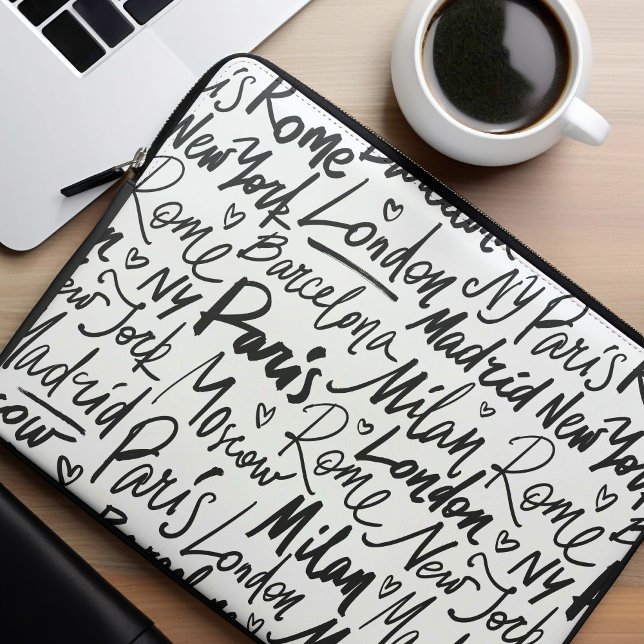 is Rome Barcelona
New York London NY Paris R
Rome Barcelona Madrid New York
NY Paris Milan Rome
New York Moscow Rome London NY
Madrid Paris Milan New York
cow London